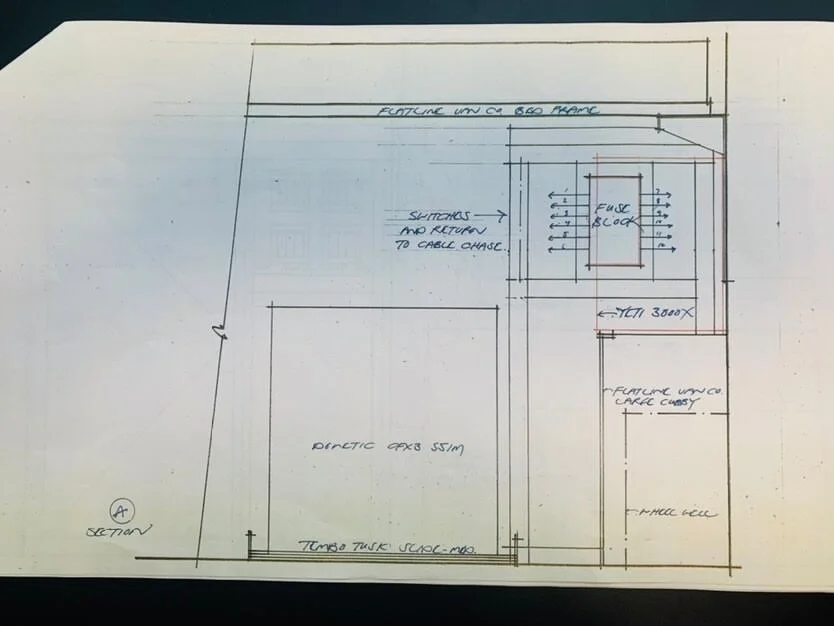 FLATLINE VAN CO. BED FRAME
SWITCHES
AND RETURN
TO CABLE CHASE.
1
2
3
4
5
6
FUSE
BLOCK
7
8
9
10
11
12
YETI 3000X
FLATLINE VAN CO.
LARGE CUBBY
DOMETIC CFX3 55IM
WHEEL WELL
A
SECTION
TEMBO TUSK SLIDE-MBO.